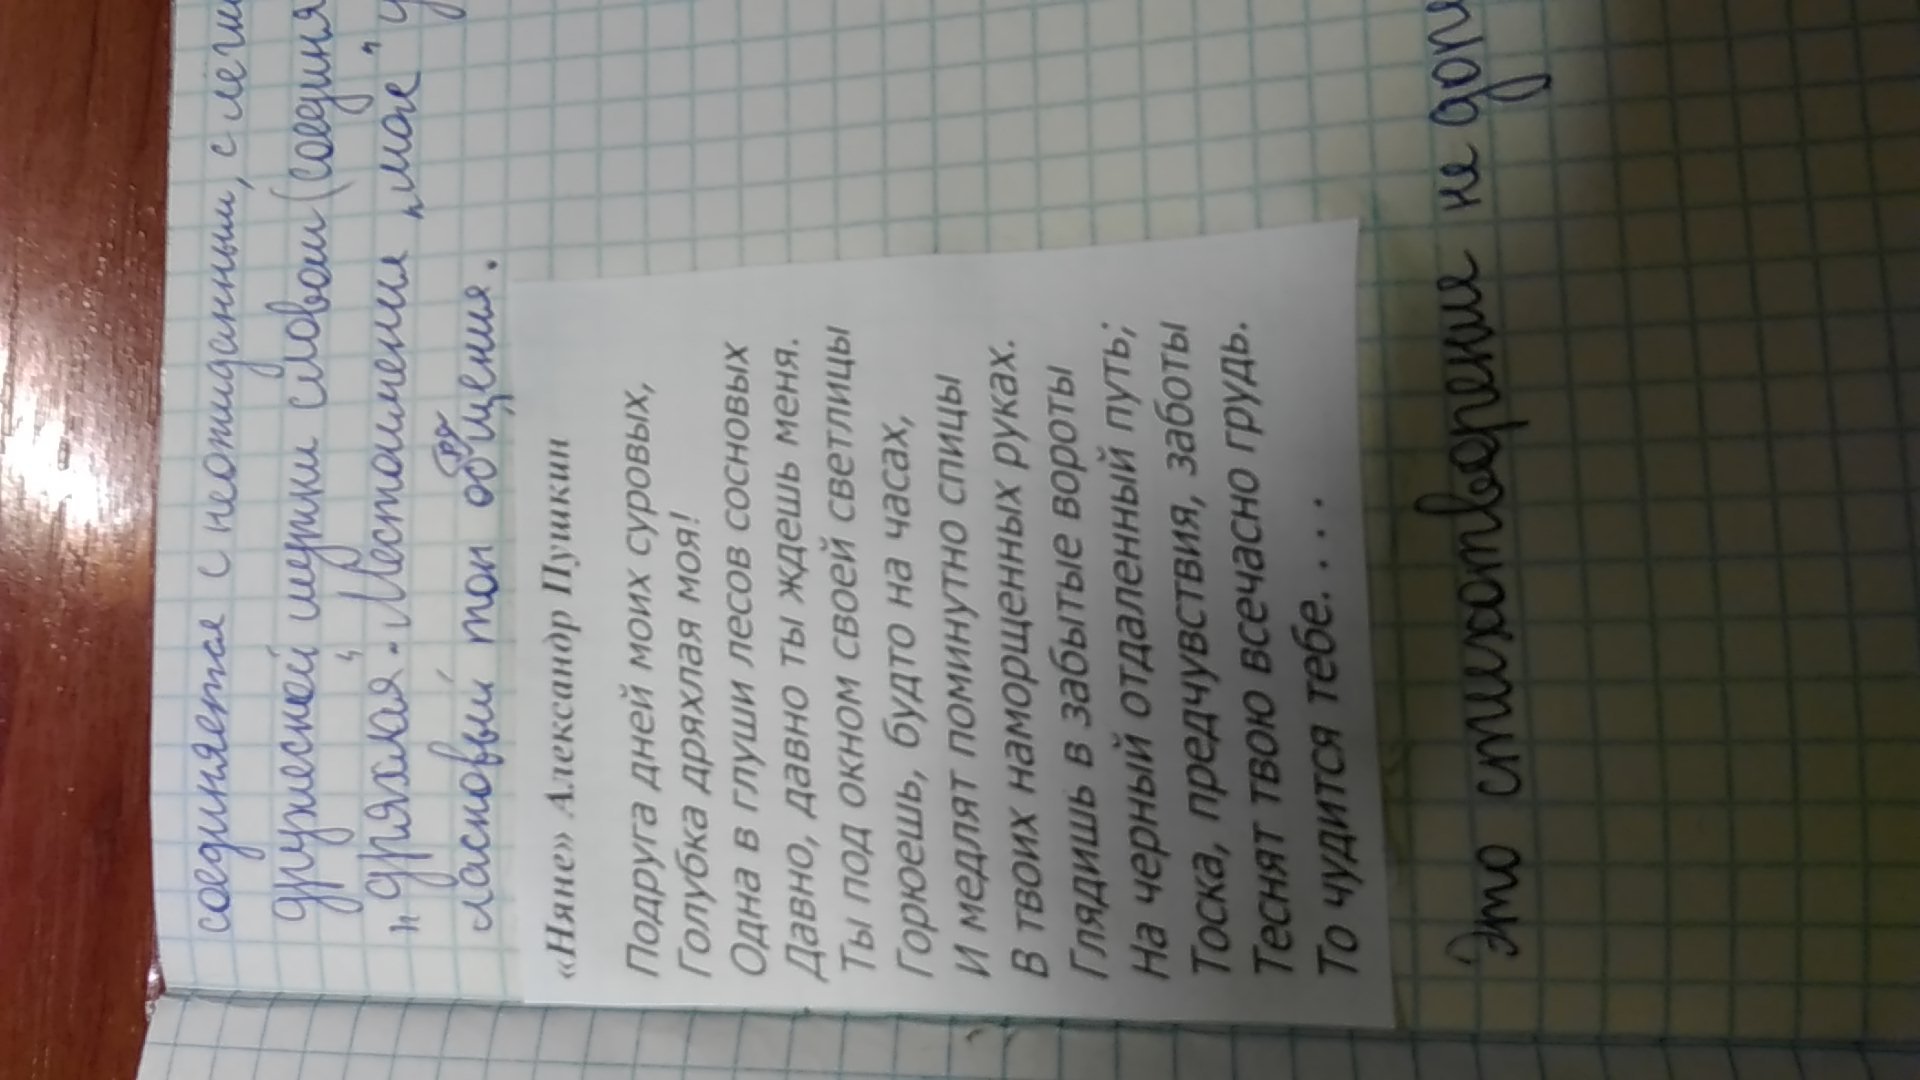 соединяется с неожиданным, с легки
дружеской шутки словом (соединя
"дряхлая". Местоимение "моя" у
ласковый тон общения.
«Няне» Александр Пушкин
Подруга дней моих суровых,
Голубка дряхлая моя!
Одна в глуши лесов сосновых
Давно, давно ты ждешь меня.
Ты под окном своей светлицы
Горюешь, будто на часах,
И медлят поминутно спицы
В твоих наморщенных руках.
Глядишь в забытые вороты
На черный отдаленный путь;
Тоска, предчувствия, заботы
Теснят твою всечасно грудь.
То чудится тебе. . . .
Это стихотворение не допи